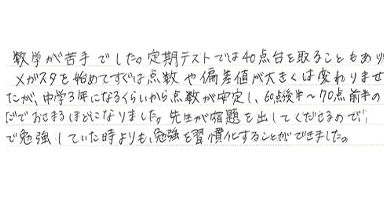 数学が苦手でした。定期テストでは40点台を取ることもあり
メガスタを始めてすぐは点数や偏差値が大きくは変わりませ
たが、中学3年になるくらいから点数が安定し、60点後半～70点前半の
でおさまるほどになりました。先生が宿題を出してくださるので、
で勉強していた時よりも、勉強を習慣化することができました。